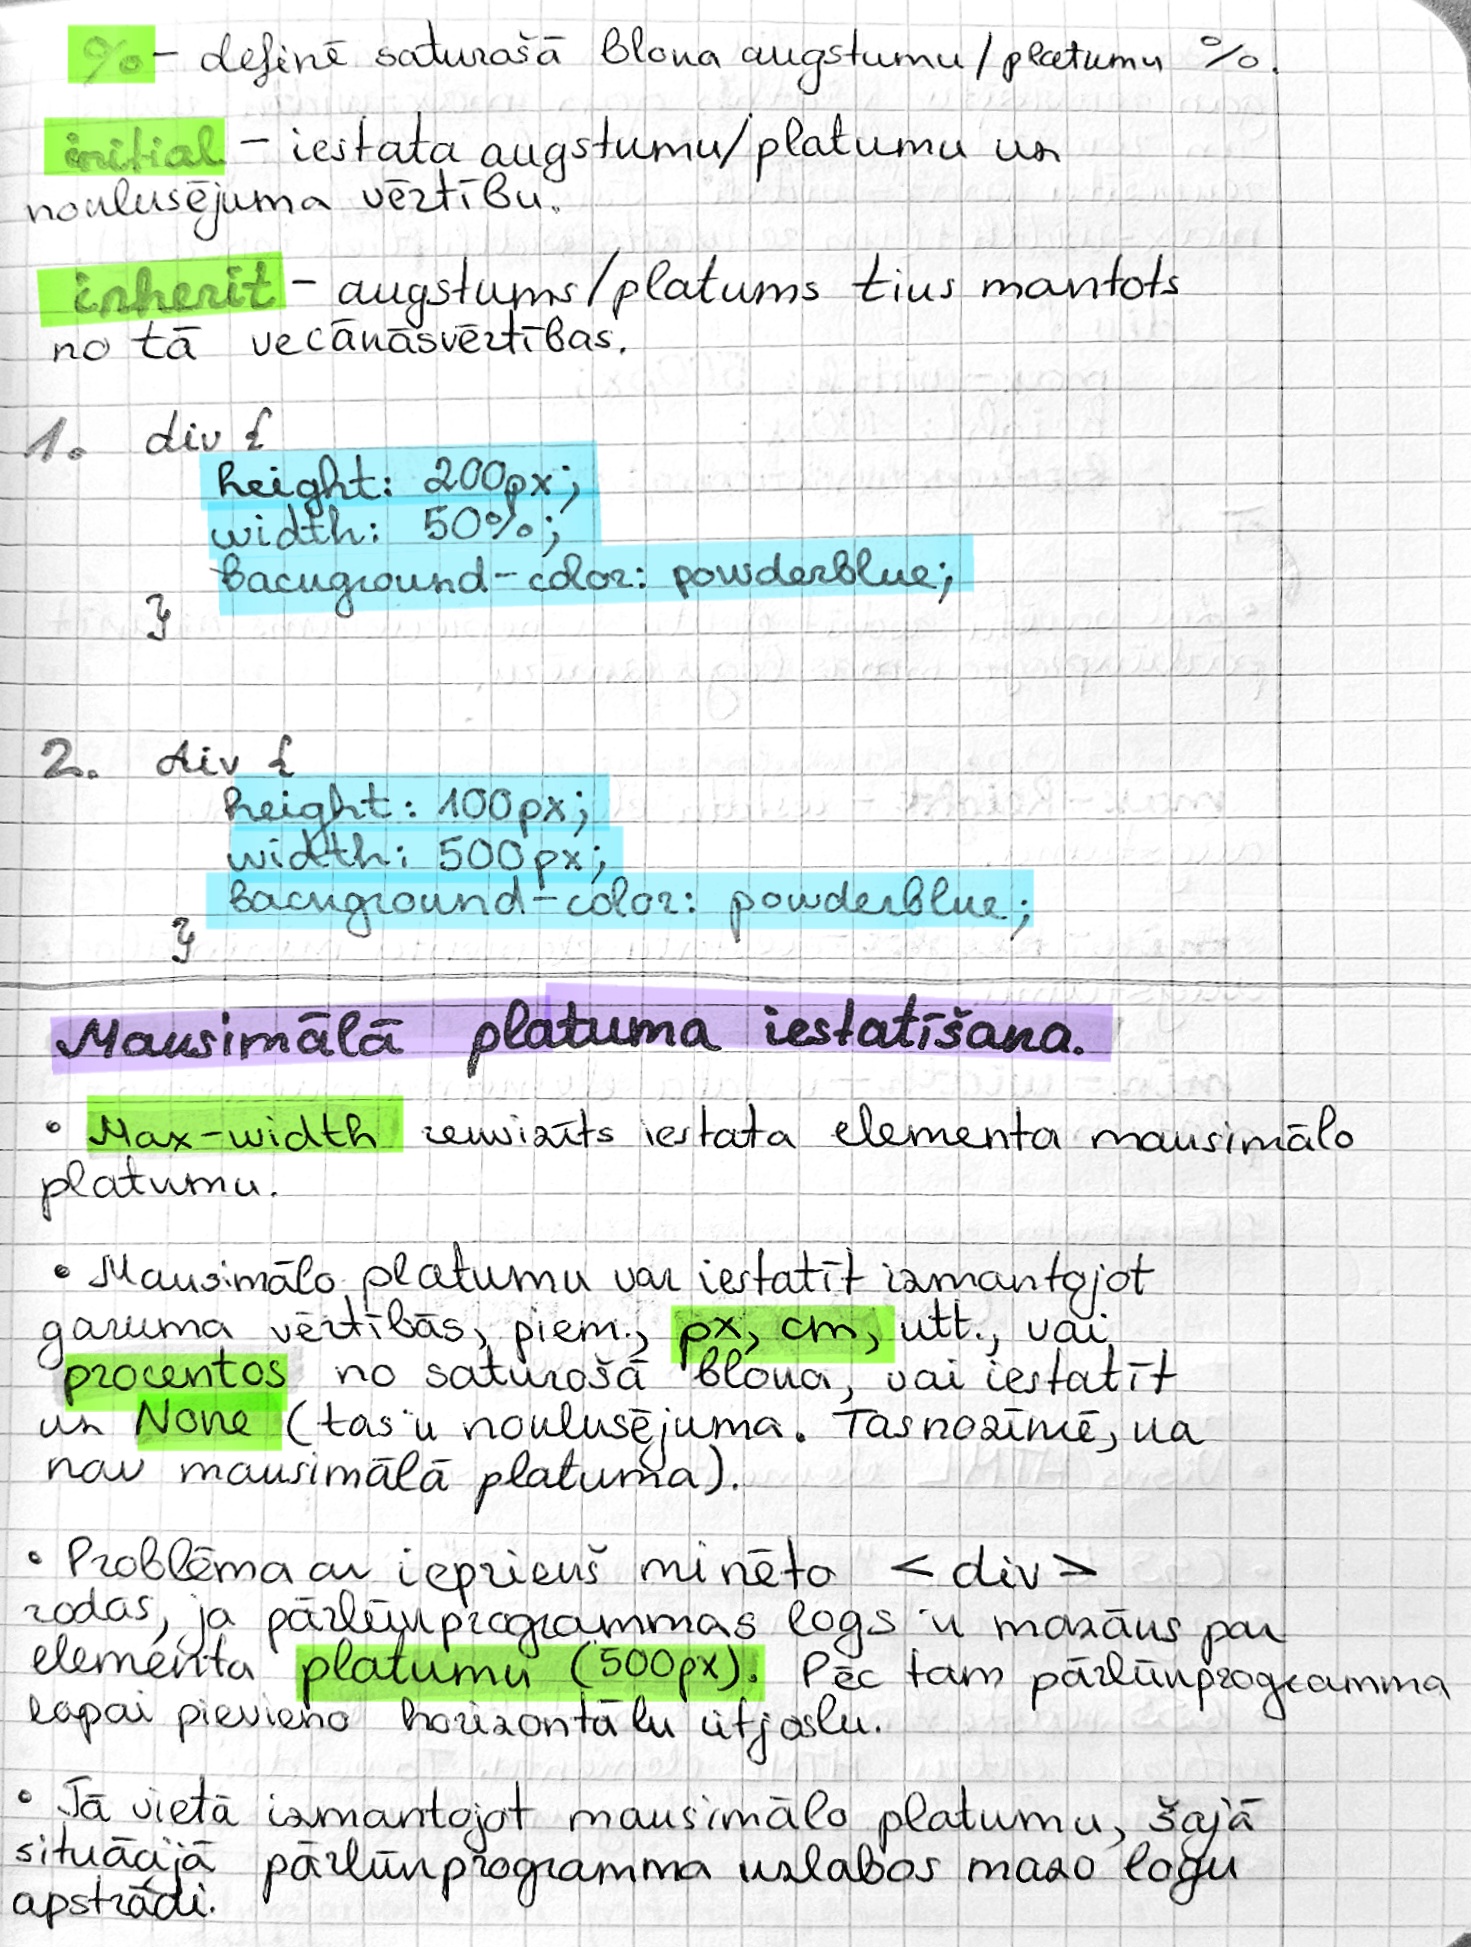 % – definē saturošā bloka augstumu/platumu %.
initial – iestata augstumu/platumu uz
noklusējuma vērtību.
inherit – augstums/platums tiks mantots
no tā vecākāsvērtības.
1. div {
height: 200px;
width: 50%;
background-color: powderblue;
}
2. div {
height: 100px;
width: 500px;
background-color: powderblue;
}
Maksimālā platuma iestatīšana.
• Max-width rekvizīts iestata elementa maksimālo
platumu.
• Maksimālo platumu var iestatīt izmantojot
garuma vērtībās, piem., px, cm, utt., vai
procentos no saturošā bloka, vai iestatīt
uz None (tas ir noklusējuma. Tas nozīmē, ka
nav maksimālā platuma).
• Problēma ar iepriekš minēto <div>
rodas, ja pārlūkprogrammas logs ir mazāks par
elementa platumu (500px). Pēc tam pārlūkprogramma
lapai pievieno horizontālu ritjoslu.
• Tā vietā izmantojot maksimālo platumu, šajā
situācijā pārlūkprogramma uzlabos mazo logu
apstrādi.